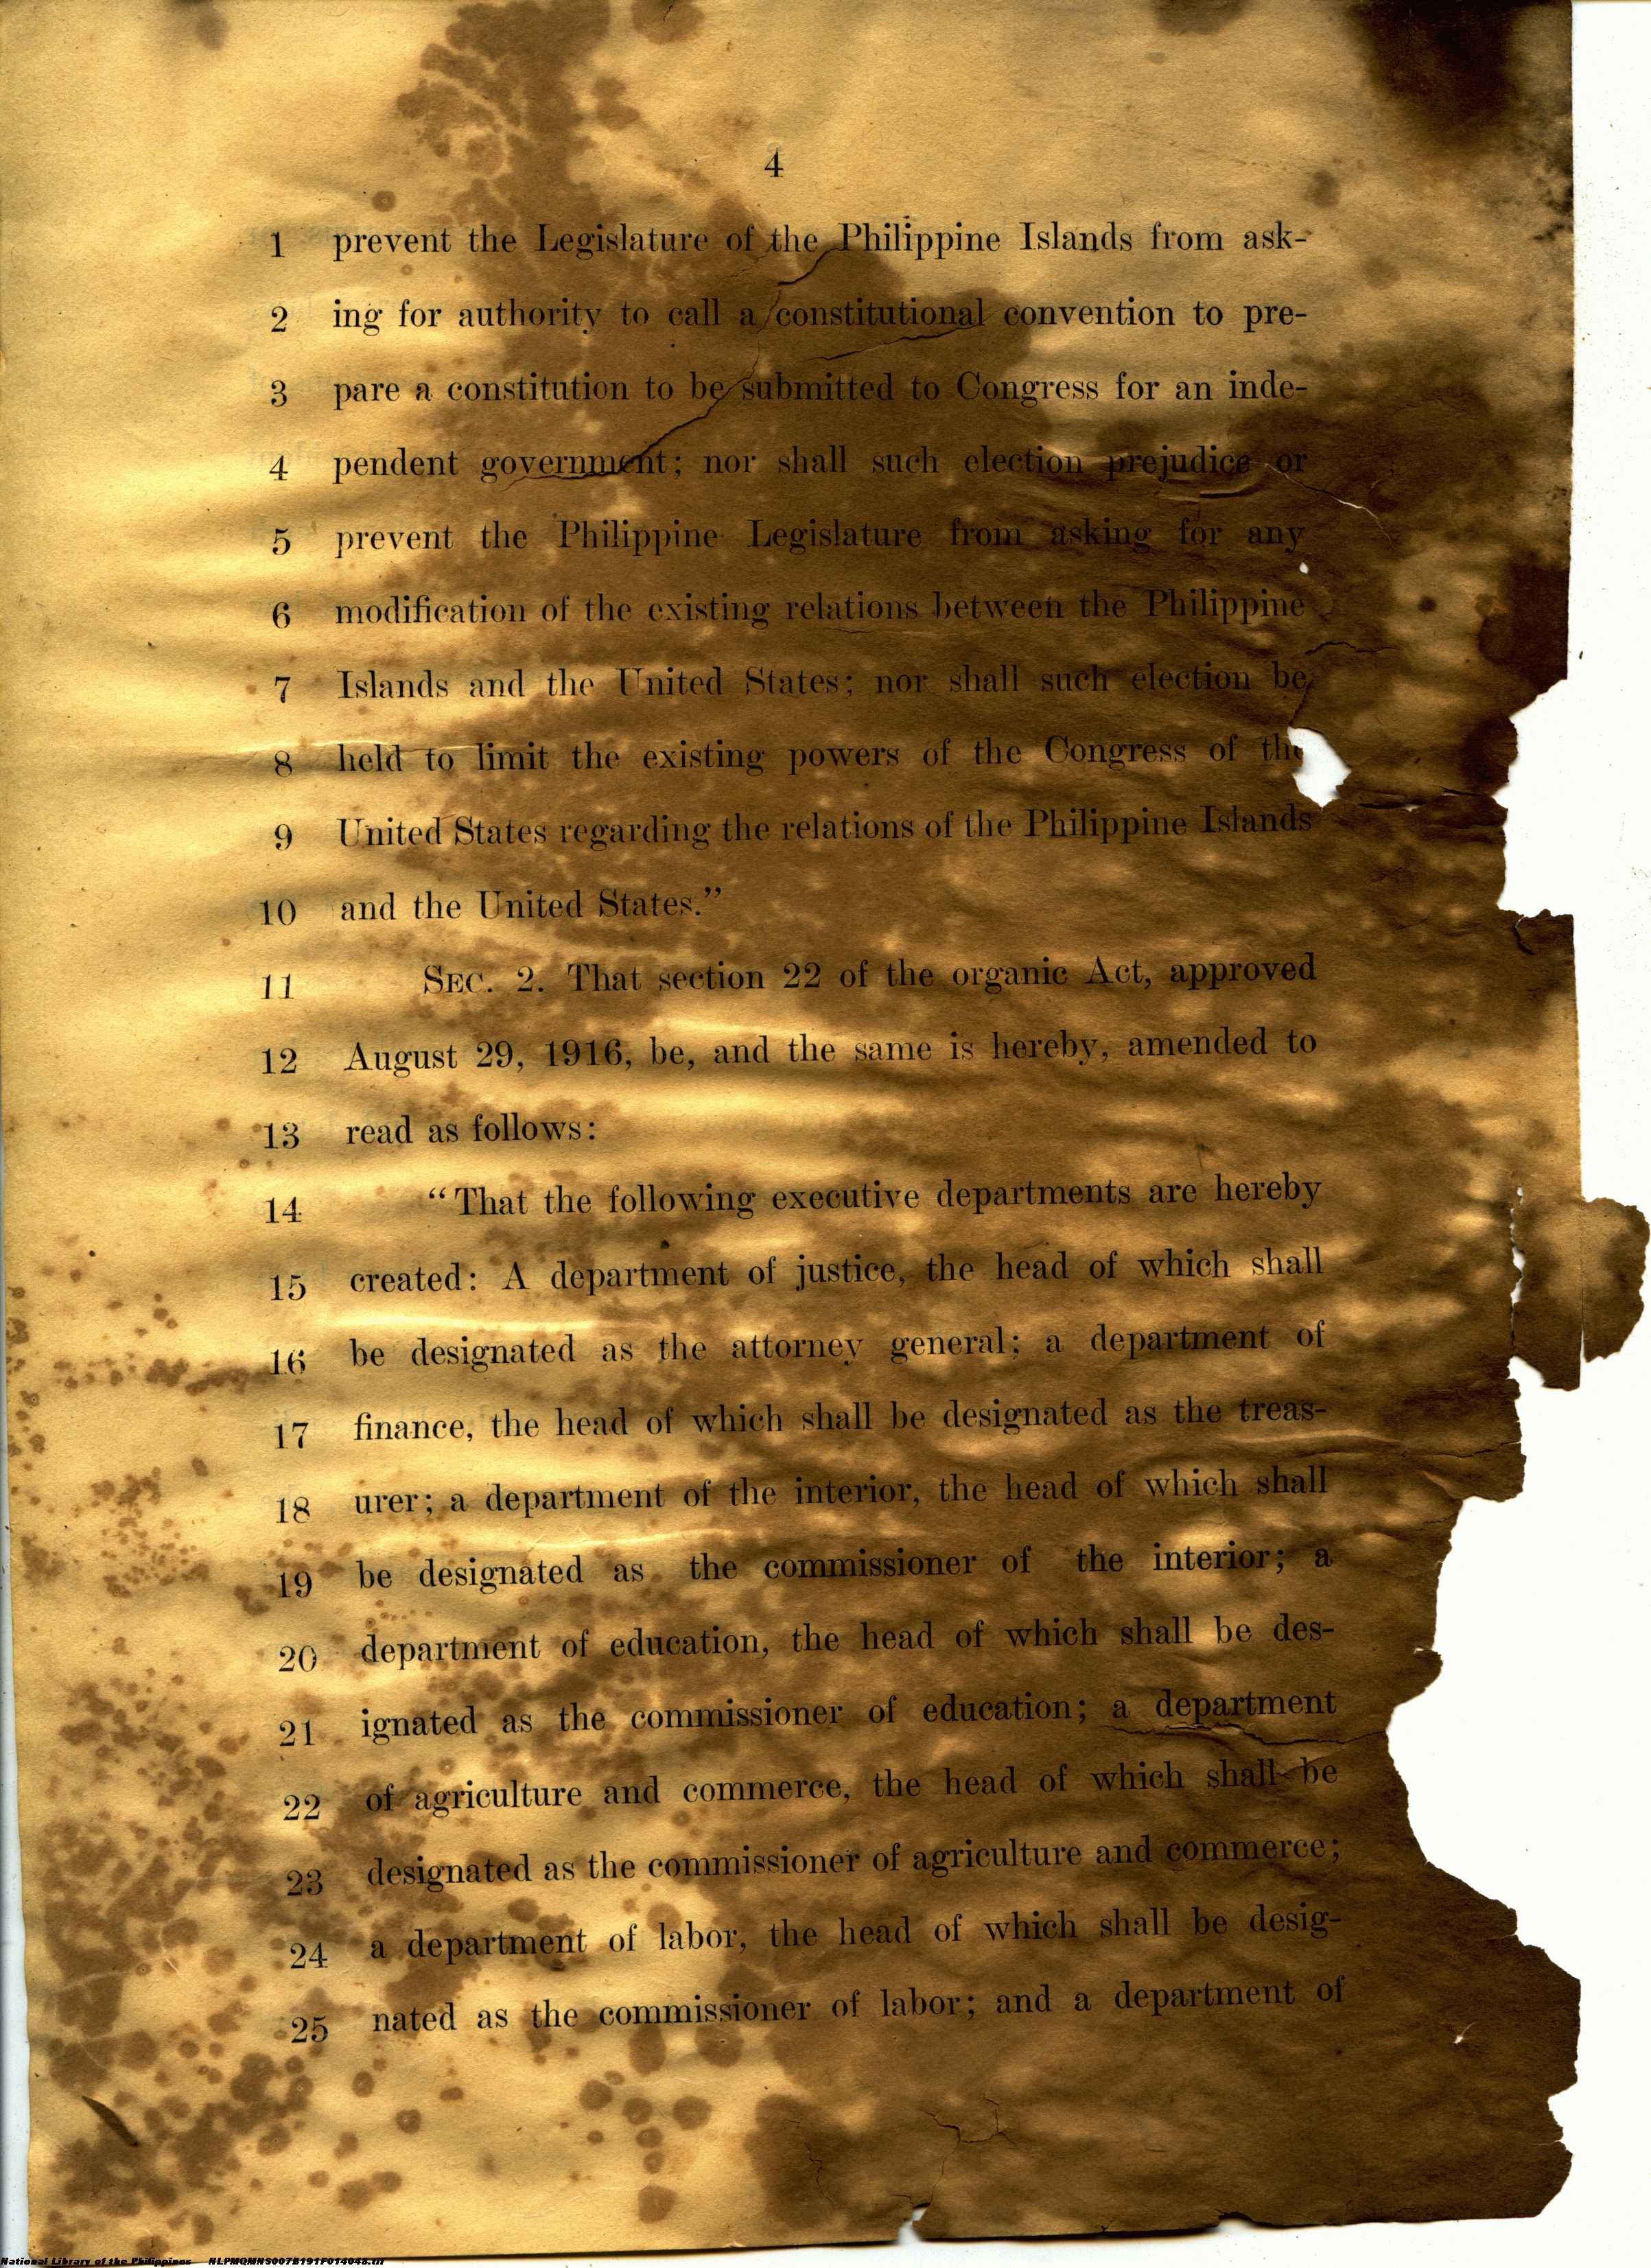 4
1 prevent the Legislature of the Philippine Islands from ask-
2 ing for authority to call a constitutional convention to pre-
3 pare a constitution to be submitted to Congress for an inde-
4 pendent government; nor shall such election prejudice or
5 prevent the Philippine Legislature from asking for any
6 modification of the existing relations between the Philippine
7 Islands and the United States; nor shall such election be
8 held to limit the existing powers of the Congress of the
9 United States regarding the relations of the Philippine Islands
10 and the United States.”
11 SEC. 2. That section 22 of the organic Act, approved
12 August 29, 1916, be, and the same is hereby, amended to
13 read as follows:
14 “That the following executive departments are hereby
15 created: A department of justice, the head of which shall
16 be designated as the attorney general; a department of
17 finance, the head of which shall be designated as the treas-
18 urer; a department of the interior, the head of which shall
19 be designated as the commissioner of the interior; a
20 department of education, the head of which shall be des-
21 ignated as the commissioner of education; a department
22 of agriculture and commerce, the head of which shall be
23 designated as the commissioner of agriculture and commerce;
24 a department of labor, the head of which shall be desig-
25 nated as the commissioner of labor; and a department of
National Library of the Philippines NLPMQMNS007B191F014048.tif